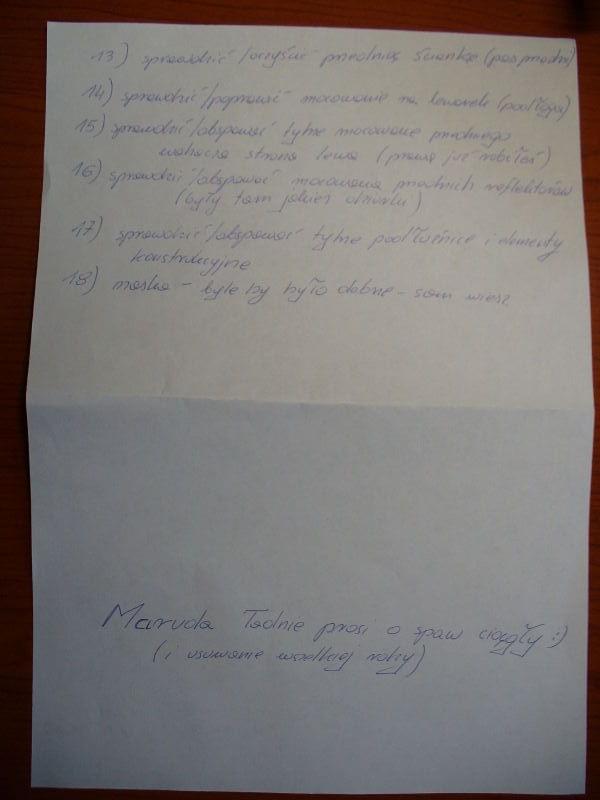 13) sprawdzić/oczyścić przednią ściankę (pas przedni)
14) sprawdzić/poprawić mocowanie na lewarek (podłoga)
15) sprawdzić/obspawać tylne mocowanie przedniego
wahacza strona lewa (prawą już robiłeś)
16) sprawdzić/obspawać mocowania przednich reflektorów
(były tam jakieś dziurki)
17) sprawdzić/obspawać tylne podłużnice i elementy
konstrukcyjne
18) maska - byle by było dobrze - sam wiesz
Maruda ładnie prosi o spaw ciągły :)
(i usuwanie wszelkiej rdzy)